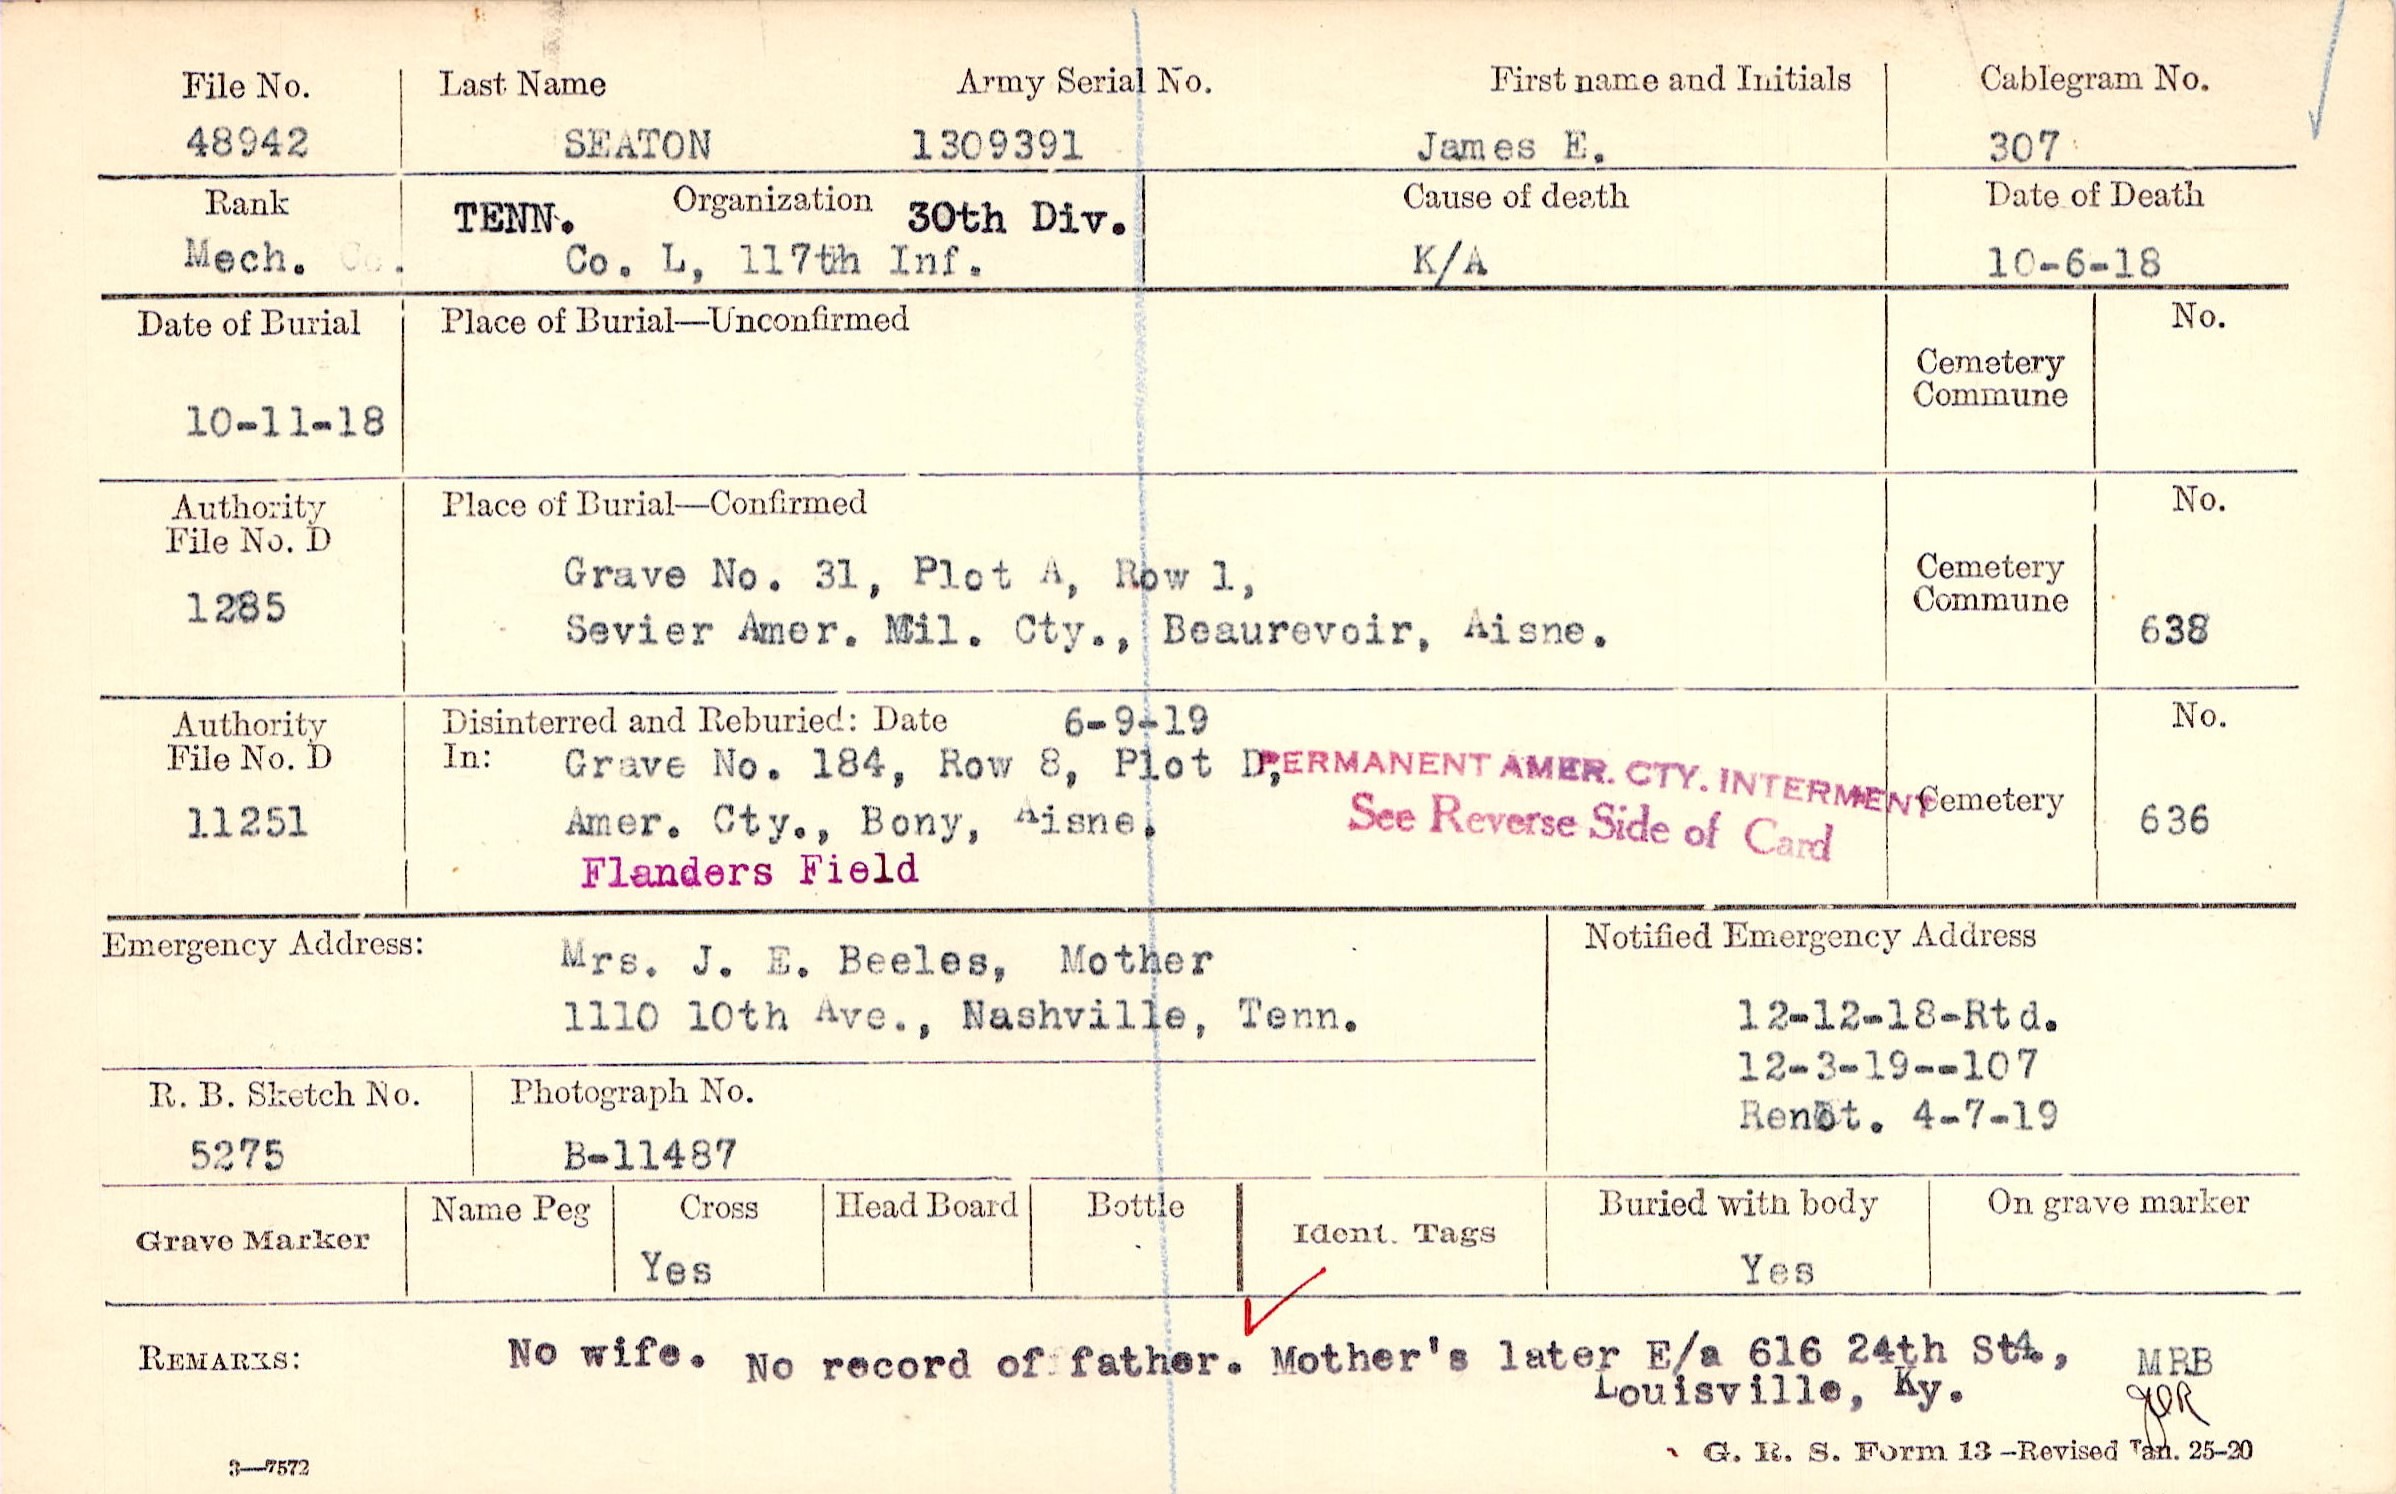 File No. Last Name Army Serial No. First name and Initials Cablegram No.
48942 SEATON 1309391 James E. 307
Rank TENN. Organization 30th Div. Cause of death Date of Death
Mech. Co. Co. L, 117th Inf. K/A 10-6-18
Date of Burial Place of Burial—Unconfirmed No.
Cemetery
Commune
10-11-18
Authority Place of Burial—Confirmed No.
File No. D
1285
Grave No. 31, Plot A, Row 1,
Sevier Amer. Mil. Cty., Beaurevoir, Aisne.
Cemetery
Commune
638
Authority Disinterred and Reburied: Date 6-9-19 No.
File No. D In: Grave No. 184, Row 8, Plot D, PERMANENT AMER. CTY. INTERMENT
11251 Amer. Cty., Bony, Aisne. See Reverse Side of Card Cemetery 636
Flanders Field
Emergency Address: Mrs. J. E. Beeles, Mother
1110 10th Ave., Nashville, Tenn.
Notified Emergency Address
12-12-18-Rtd.
12-3-19--107
Renot. 4-7-19
R. B. Sketch No. Photograph No.
5275 B-11487
Grave Marker Name Peg Cross Head Board Bottle Ident. Tags Buried with body On grave marker
Yes Yes
REMARKS: No wife. No record of father. Mother's later E/a 616 24th St., MRB
Louisville, Ky.
3—7572 G. R. S. Form 13—Revised Jan. 25-20